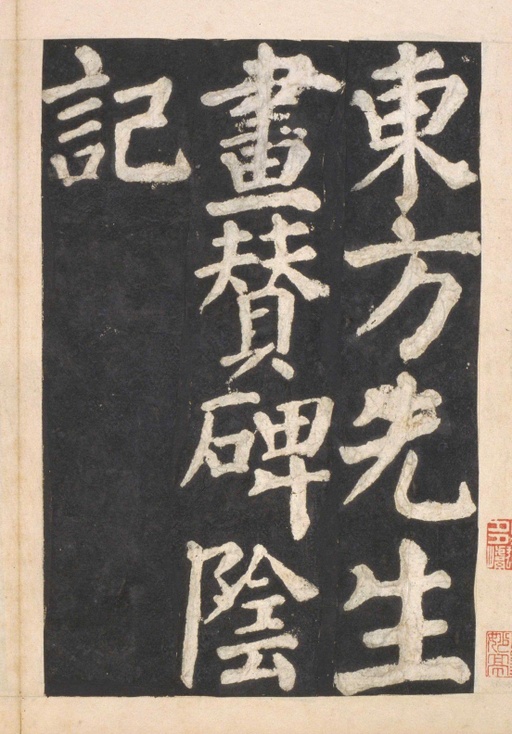 東方先生
畫賛碑陰
記